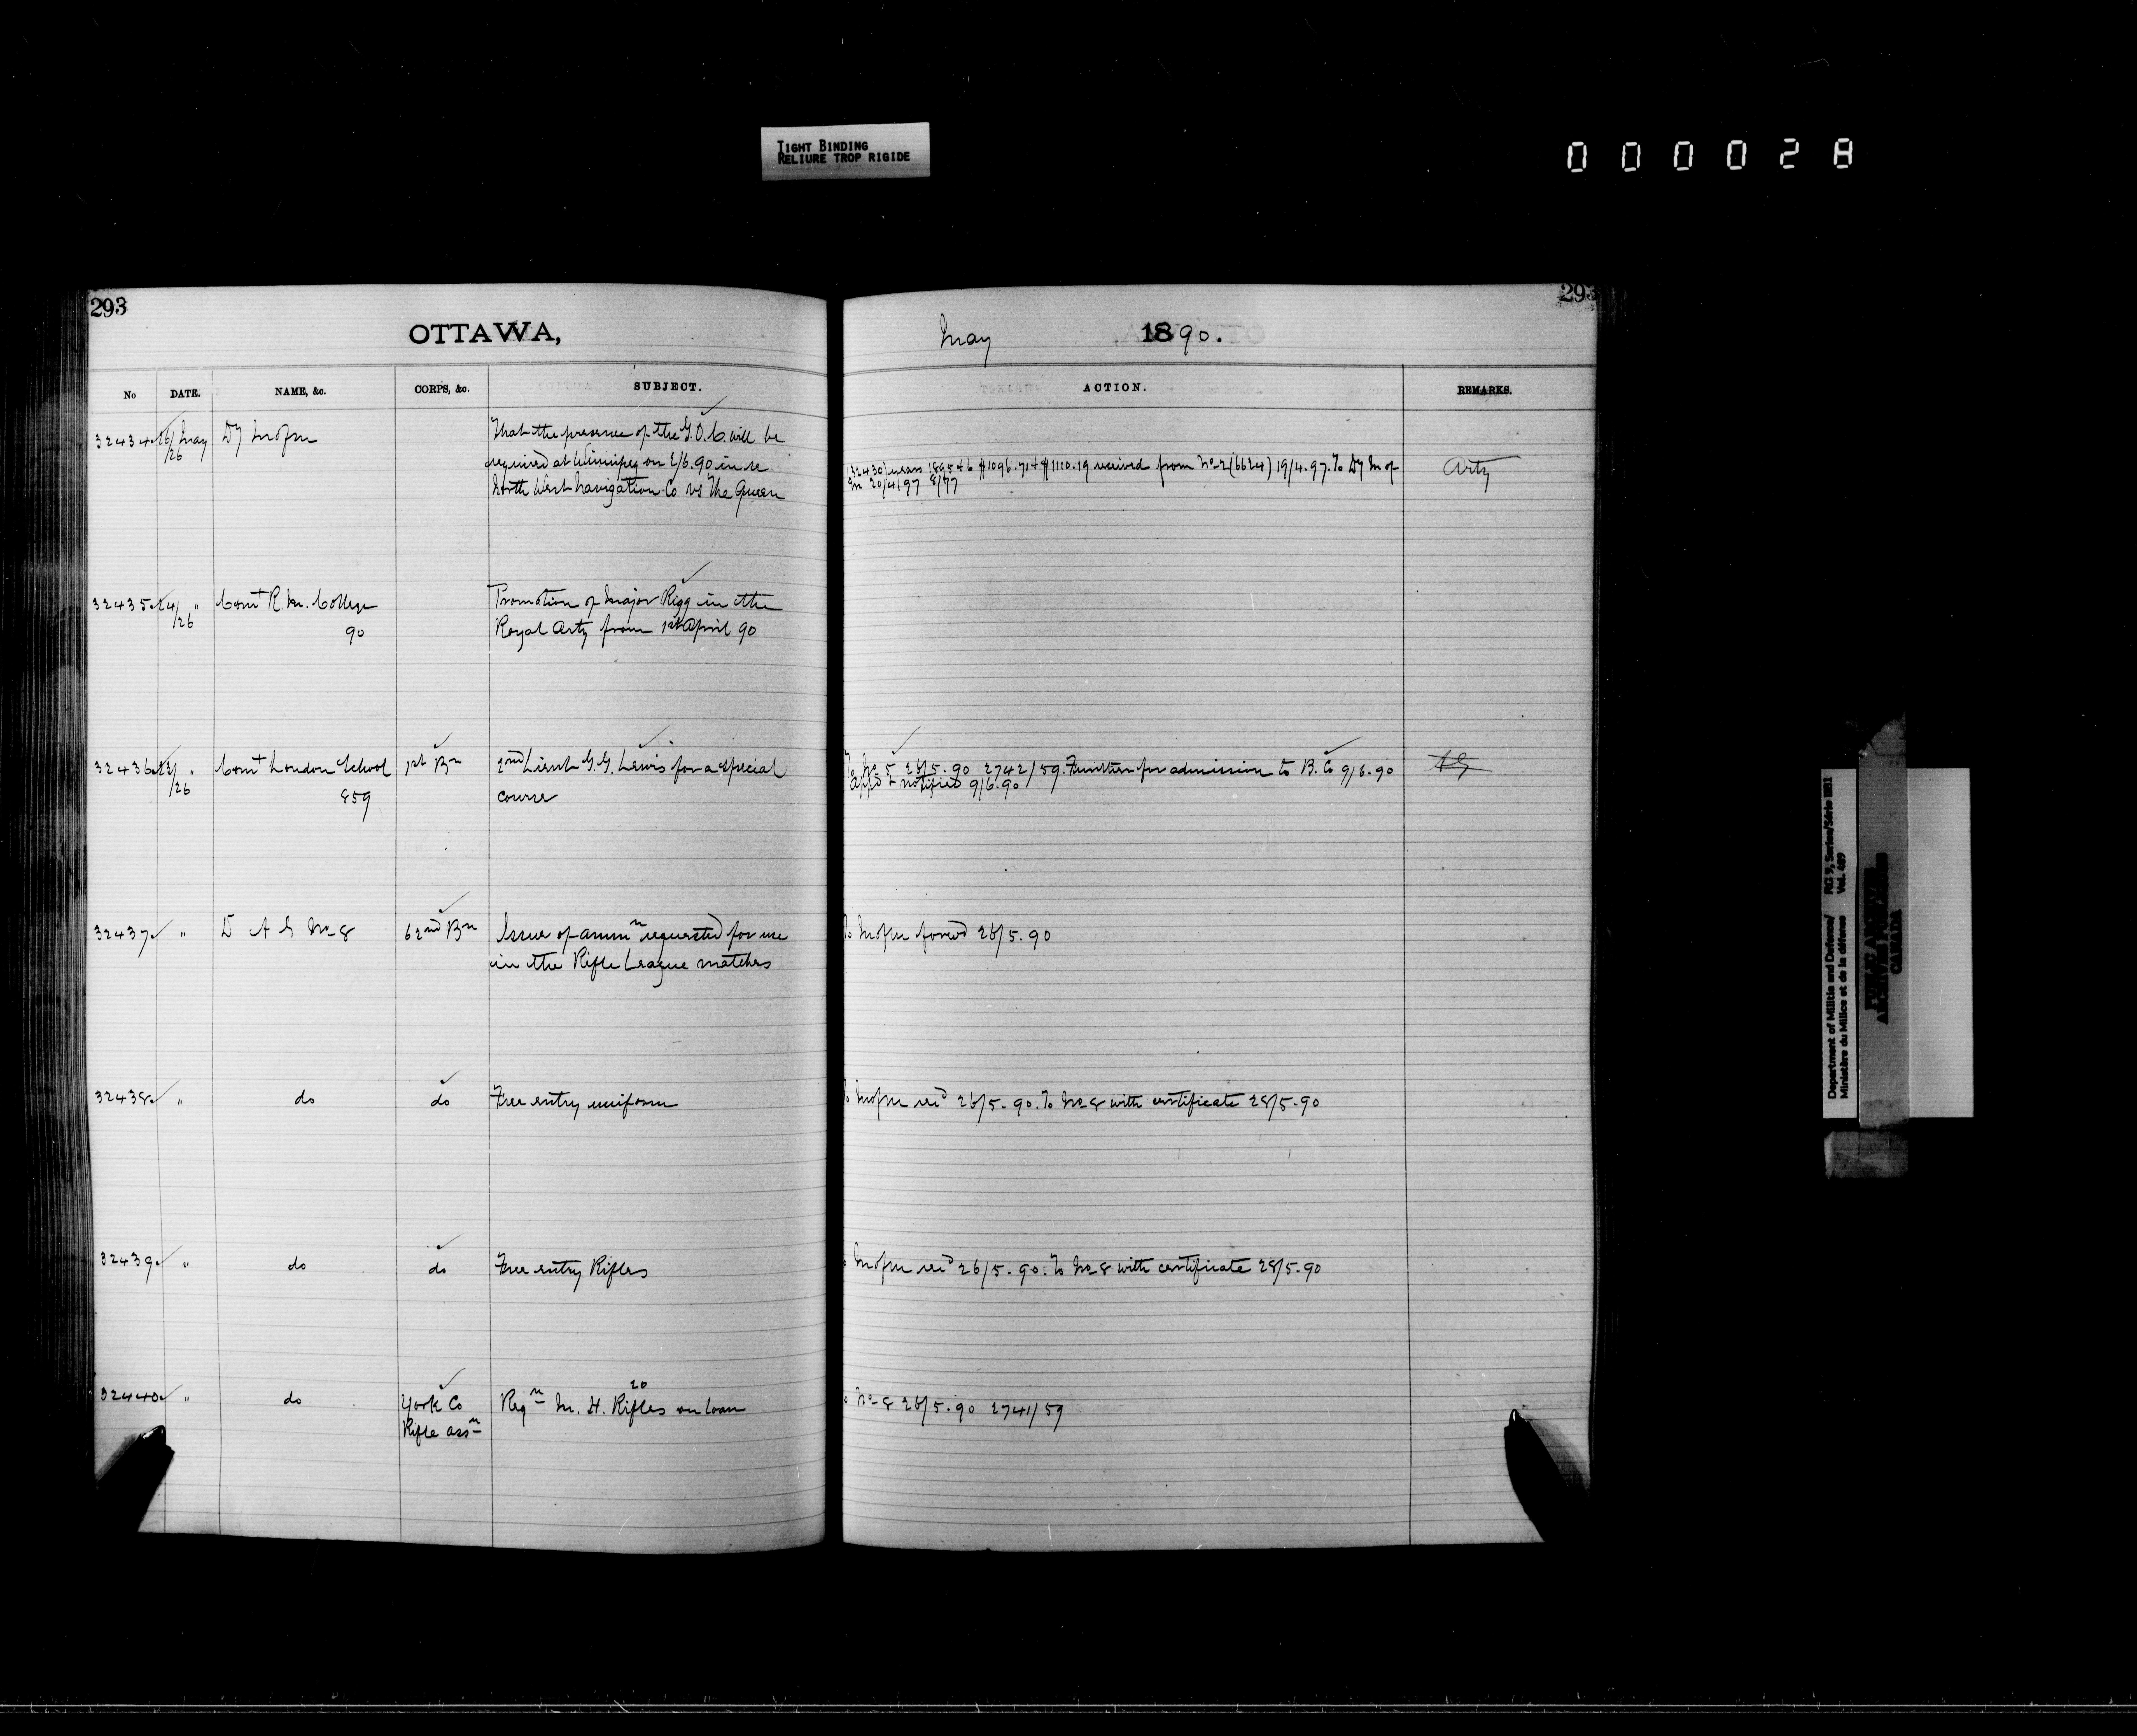 TIGHT BINDING
RELIURE TROP RIGIDE
000028
293
OTTAWA,
No DATE. NAME, &c. CORPS, &c. SUBJECT.
32434 26/26 May Dy M of M That the presence of the G.O.C. will be
required at Winnipeg on 2/6.90 in re
North West Navigation Co vs The Queen
32435 24/26 " Comt R. M. College Promotion of Major Rigg in the
90 Royal Arty from 1st April 90
32436 23/26 " Comt London School 1st Bn 2nd Lieut G. G. Lewis for a special
859 course
32437 " D A G No 8 62nd Bn Issue of ammn requested for use
in the Rifle League matches
32438 " do do Free entry uniform
32439 " do do Free entry Rifles
32440 " do York Co Reqn M. H. 20 Rifles on loan
Rifle assn
293
May 1890.
ACTION. REMARKS.
(32430) years 1895 + 6 $1096.71 + $1110.19 received from No 2 (6624) 19/4.97. To Dy M of Arty
M 20/4/97 8/77
To No 5 26/5.90 2742/59. Further for admission to B. Co 9/6.90 AG
Appd & notified 9/6.90
To M of M forwd 26/5.90
To M of M recd 26/5.90. To No 8 with certificate 28/5.90
M of M recd 26/5.90. To No 8 with certificate 28/5.90
No 8 26/5.90 2741/59
Department of Militia and Defence/ RG 9, Series/Série IIB1
Ministère du Milice et de la défense Vol. 489
PUBLIC ARCHIVES
ARCHIVES PUBLIQUES
CANADA